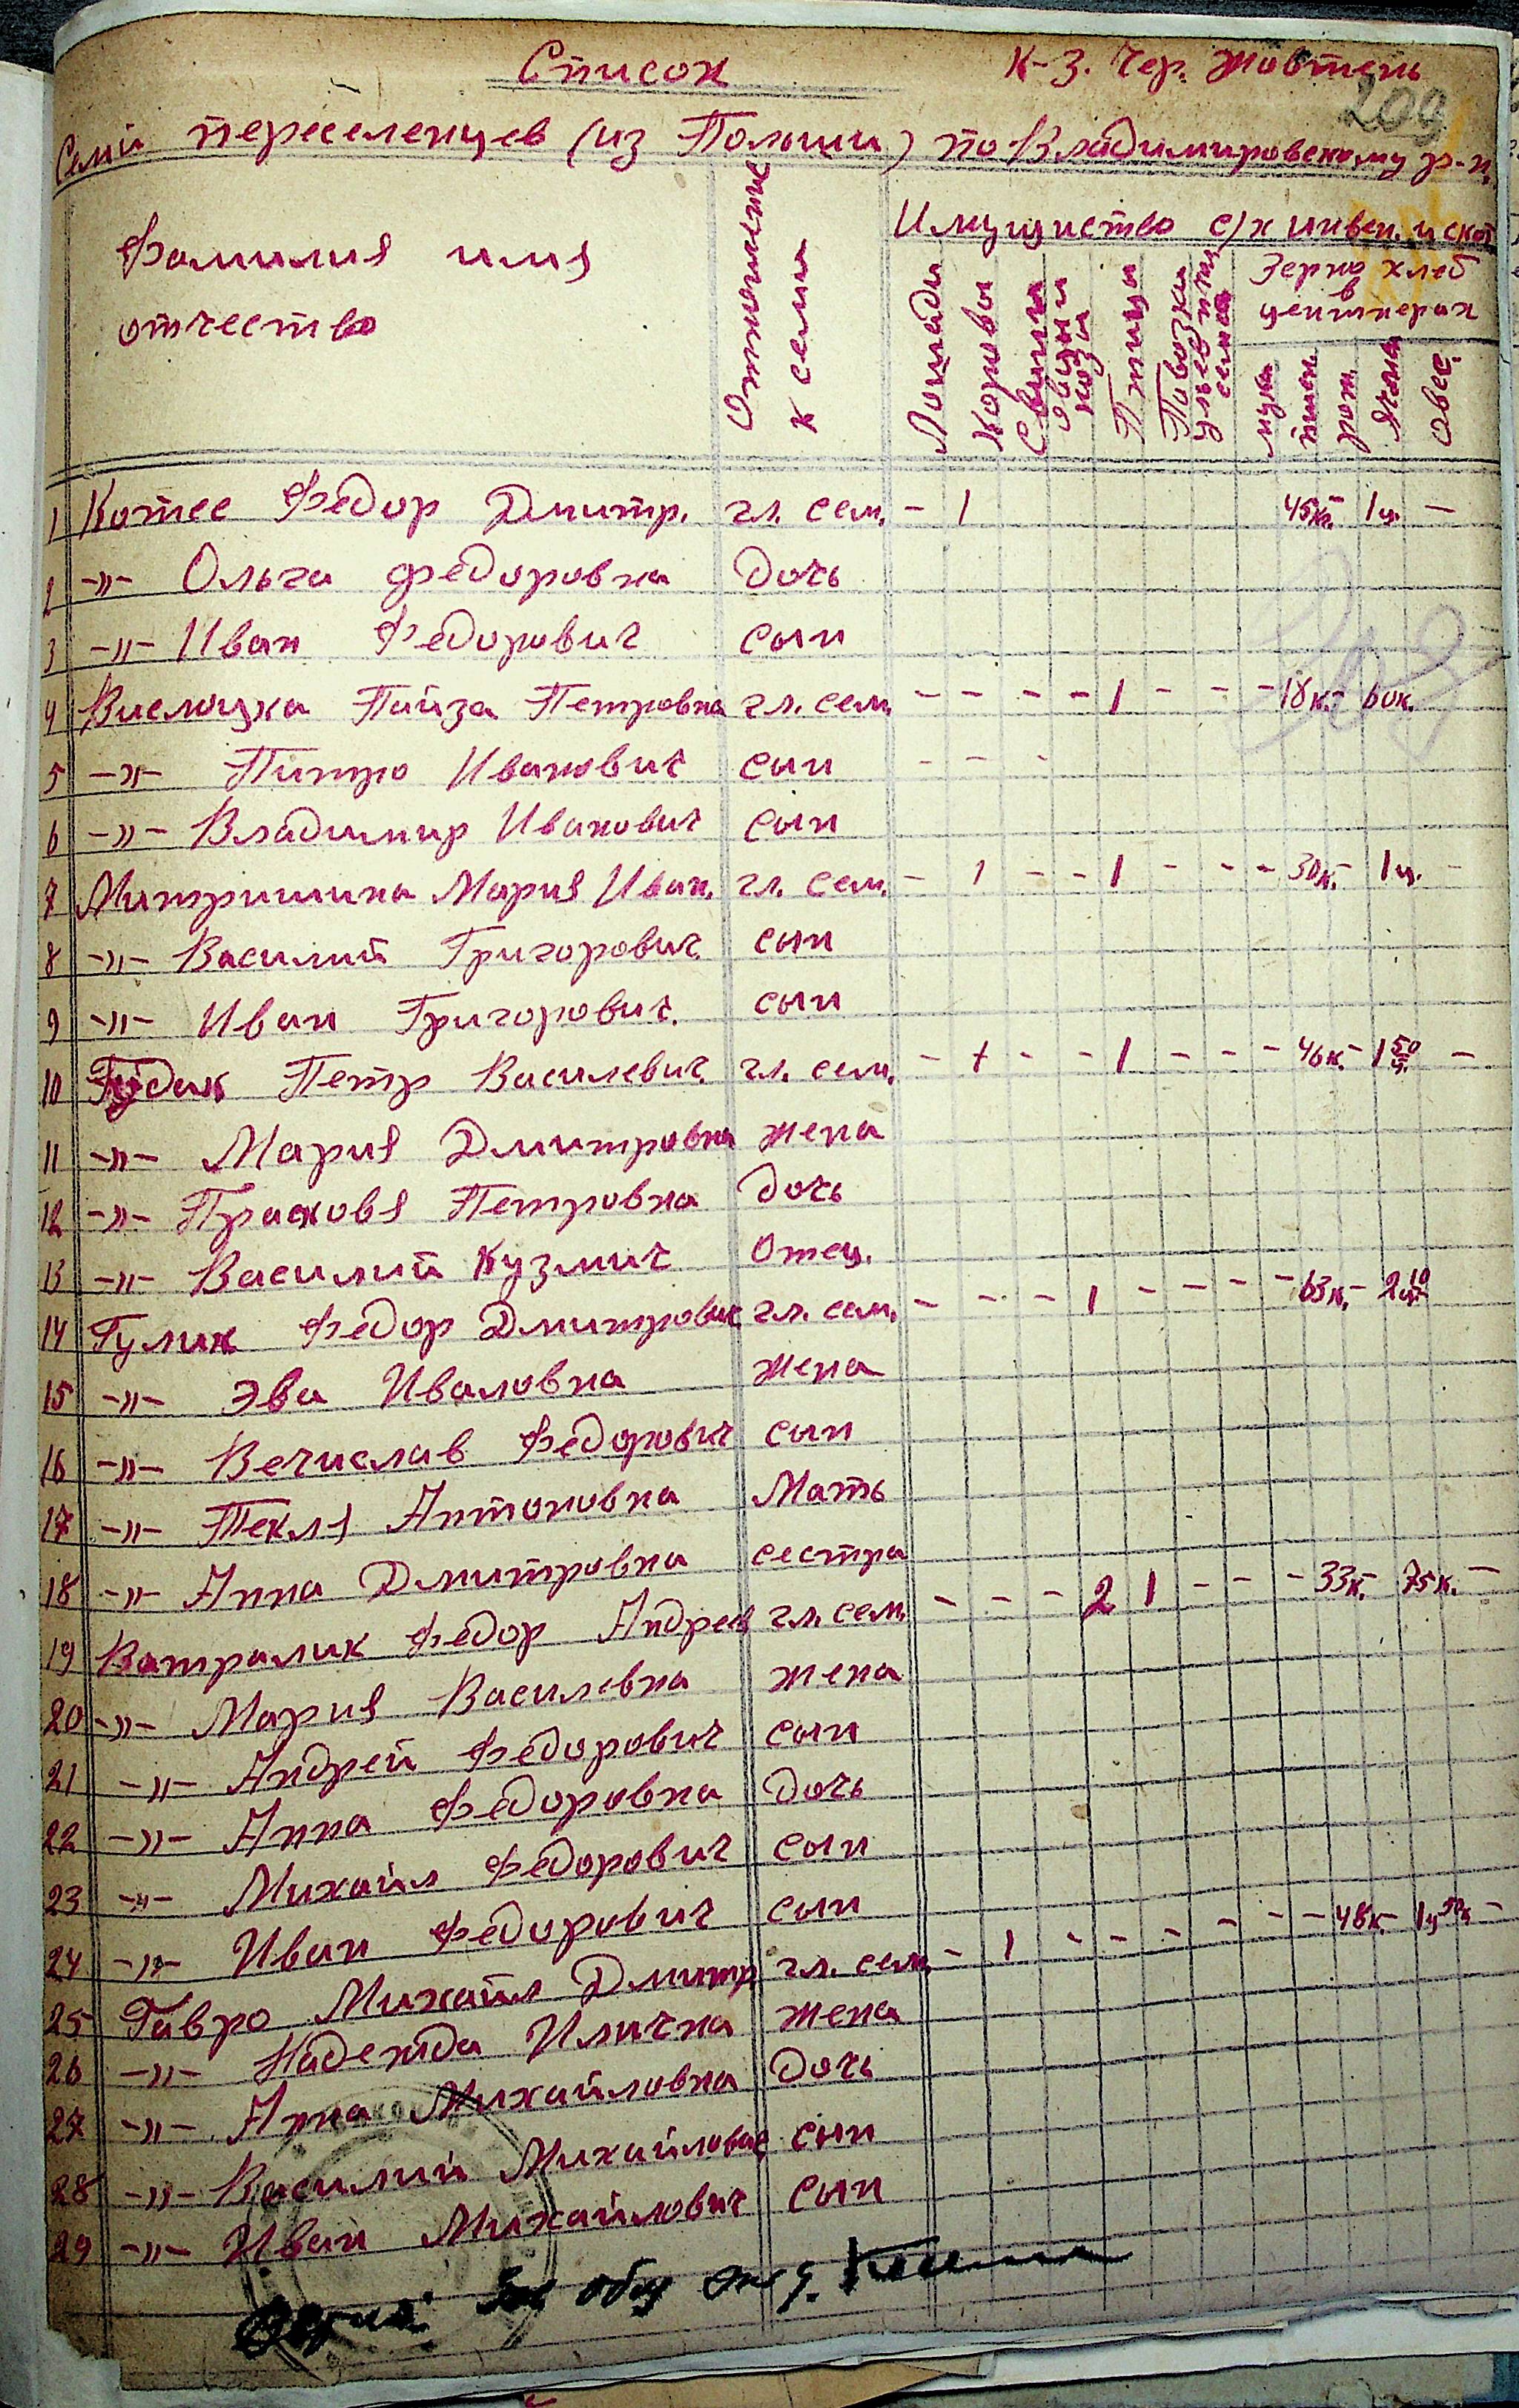 Список К-З. Чер. Жовтень
209
Семи переселенцев (из Польши) по Владимировскому р-н.
Фамилия имя отчество
Отношение к семии
Имущиство с/х инвен. и скот
Лошади
Коровы
Свиньи овцы и козы
Птицы
Повозки
Зерно хлеб в центнерах
мука
пшен.
рож.
Ячмен
овес.
1 Котес Федор Дмитр. гл. сем. - 1 45кг. - 1ц. -
2 -"- Ольга Федоровна дочь
3 -"- Иван Федорович сын
4 Вислоцка Пайза Петровна гл. сем. - - - - 1 - - - 18к. - 60к.
5 -"- Питро Иванович сын - - -
6 -"- Владимир Иванович сын
7 Митришина Мария Иван. гл. сем. - 1 - - 1 - - - 30к. - 1ц. -
8 -"- Василий Григорович сын
9 -"- Иван Григорович. сын
10 Гудик Петр Василевич. гл. сем. - 1 - - 1 - - - 46к. - 1 50 ц. -
11 -"- Мария Дмитровна жена
12 -"- Прасковя Петровна дочь
13 -"- Василий Кузмич Отец.
14 Гулик Федор Дмитрович гл. сем. - - - 1 - - - - 63к. - 2 10 ц.
15 -"- Эва Ивановна жена
16 -"- Вечислав Федорович сын
17 -"- Текля Антоновна Мать
18 -"- Анна Дмитровна сестра
19 Ватралик Федор Андреев гл. сем. - - - 2 1 - - - 33к. - 75к. -
20 -"- Мария Василевна жена
21 -"- Андрей Федорович сын
22 -"- Анна Федоровна дочь
23 -"- Михайл Федорович сын
24 -"- Иван Федорович сын
25 Гавро Михайл Дмитр гл. сем. - 1 - - - - - - 48к - 1ц 50к -
26 -"- Надежда Илична жена
27 -"- Анна Михайловна дочь
28 -"- Василий Михайлович сын
29 -"- Иван Михайлович сын